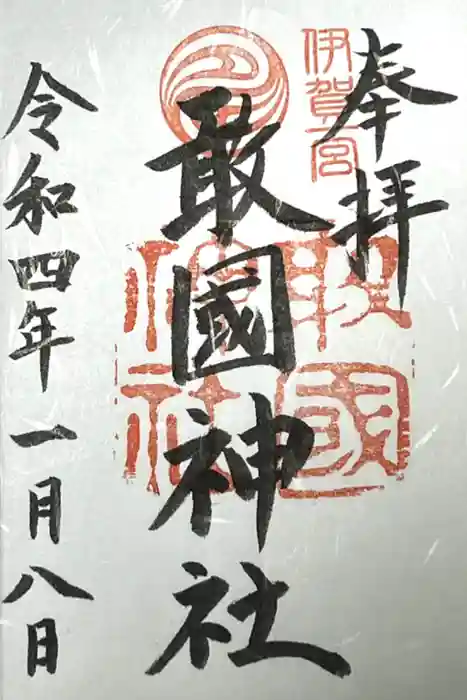 奉拝
伊賀一宮
敢國神社
敢國
神社
令和四年一月八日